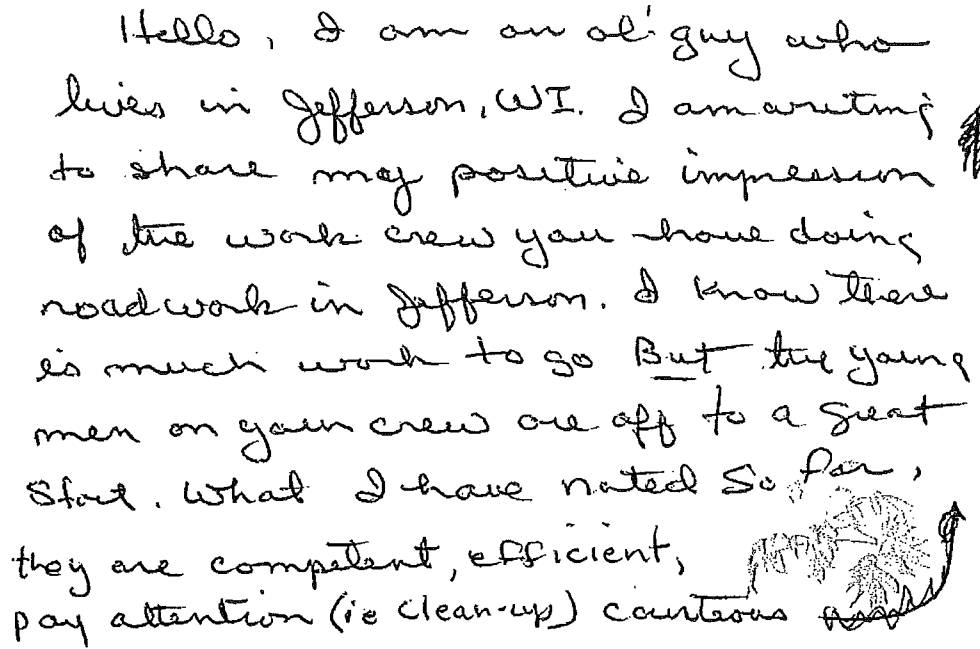 Hello, I am an ol' guy who
lives in Jefferson, WI. I am writing
to share my positive impression
of the work crew you have doing
roadwork in Jefferson. I know there
is much work to go But the young
men on your crew are off to a great
Start. What I have noted So far,
they are competent, efficient,
pay attention (ie clean-up) courteous